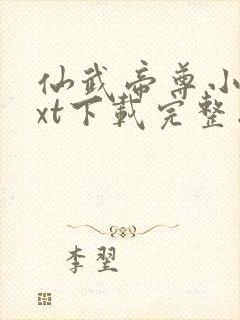 仙武帝尊小
xt下载完整
李翌